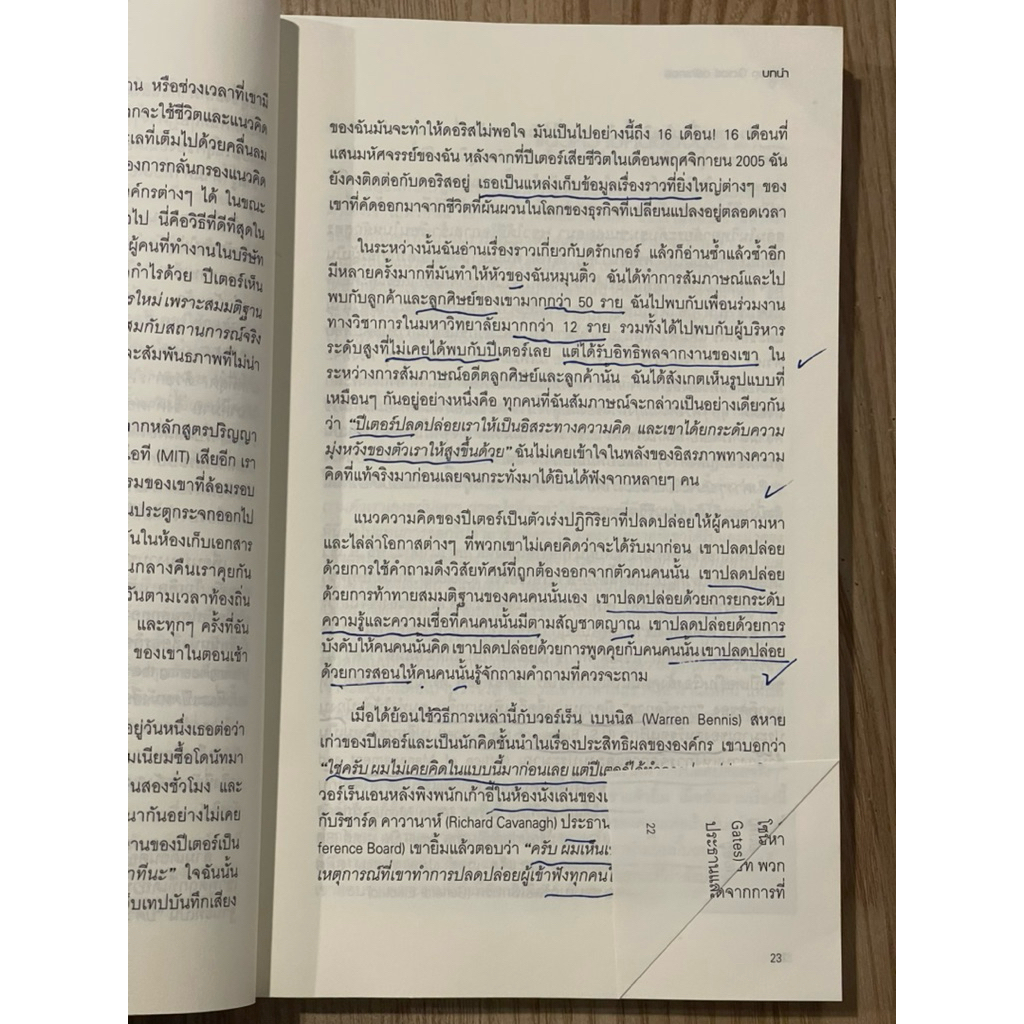 าน หรือช่วงเวลาที่เขามี
กจะใช้ชีวิตและแนวคิด
ะเลที่เต็มไปด้วยคลื่นลม
องการกลั่นกรองแนวคิด
งค์กรต่างๆ ได้ ในขณะ
ไป นี่คือวิธีที่ดีที่สุดใน
ผู้คนที่ทำงานในบริษัท
กำไรด้วย ปีเตอร์เห็น
รใหม่ เพราะสมมติฐาน
สมกับสถานการณ์จริง
จะสัมพันธภาพที่ไม่น่า
จากหลักสูตรปริญญา
อที (MIT) เสียอีก เรา
รมของเขาที่ล้อมรอบ
นประตูกระจกออกไป
กันในห้องเก็บเอกสาร
นกลางคืนเราคุยกัน
วันตามเวลาท้องถิ่น
และทุกๆ ครั้งที่ฉัน
ของเขาในตอนเช้า
อยู่วันหนึ่งเธอต่อว่า
มเนียมซื้อโดนัทมา
นสองชั่วโมง และ
นากันอย่างไม่เคย
านของปีเตอร์เป็น
าทีนะ” ใจฉันนั้น
็บเทปบันทึกเสียง
บทนำ
ของฉันมันจะทำให้ดอริสไม่พอใจ มันเป็นไปอย่างนี้ถึง 16 เดือน! 16 เดือนที่
แสนมหัศจรรย์ของฉัน หลังจากที่ปีเตอร์เสียชีวิตในเดือนพฤศจิกายน 2005 ฉัน
ยังคงติดต่อกับดอริสอยู่ เธอเป็นแหล่งเก็บข้อมูลเรื่องราวที่ยิ่งใหญ่ต่างๆ ของ
เขาที่คัดออกมาจากชีวิตที่ผันผวนในโลกของธุรกิจที่เปลี่ยนแปลงอยู่ตลอดเวลา
ในระหว่างนั้นฉันอ่านเรื่องราวเกี่ยวกับดรักเกอร์ แล้วก็อ่านซ้ำแล้วซ้ำอีก
มีหลายครั้งมากที่มันทำให้หัวของฉันหมุนติ้ว ฉันได้ทำการสัมภาษณ์และไป
พบกับลูกค้าและลูกศิษย์ของเขามากกว่า 50 ราย ฉันไปพบกับเพื่อนร่วมงาน
ทางวิชาการในมหาวิทยาลัยมากกว่า 12 ราย รวมทั้งได้ไปพบกับผู้บริหาร
ระดับสูงที่ไม่เคยได้พบกับปีเตอร์เลย แต่ได้รับอิทธิพลจากงานของเขา ใน
ระหว่างการสัมภาษณ์อดีตลูกศิษย์และลูกค้านั้น ฉันได้สังเกตเห็นรูปแบบที่
เหมือนๆ กันอยู่อย่างหนึ่งคือ ทุกคนที่ฉันสัมภาษณ์จะกล่าวเป็นอย่างเดียวกัน
ว่า “ปีเตอร์ปลดปล่อยเราให้เป็นอิสระทางความคิด และเขาได้ยกระดับความ
มุ่งหวังของตัวเราให้สูงขึ้นด้วย” ฉันไม่เคยเข้าใจในพลังของอิสรภาพทางความ
คิดที่แท้จริงมาก่อนเลยจนกระทั่งมาได้ยินได้ฟังจากหลายๆ คน
แนวความคิดของปีเตอร์เป็นตัวเร่งปฏิกิริยาที่ปลดปล่อยให้ผู้คนตามหา
และไล่ล่าโอกาสต่างๆ ที่พวกเขาไม่เคยคิดว่าจะได้รับมาก่อน เขาปลดปล่อย
ด้วยการใช้คำถามดึงวิสัยทัศน์ที่ถูกต้องออกจากตัวคนคนนั้น เขาปลดปล่อย
ด้วยการท้าทายสมมติฐานของคนคนนั้นเอง เขาปลดปล่อยด้วยการยกระดับ
ความรู้และความเชื่อที่คนคนนั้นมีตามสัญชาตญาณ เขาปลดปล่อยด้วยการ
บังคับให้คนคนนั้นคิด เขาปลดปล่อยด้วยการพูดคุยกับคนคนนั้น เขาปลดปล่อย
ด้วยการสอนให้คนคนนั้นรู้จักถามคำถามที่ควรจะถาม
เมื่อได้ย้อนใช้วิธีการเหล่านี้กับวอร์เร็น เบนนิส (Warren Bennis) สหาย
เก่าของปีเตอร์และเป็นนักคิดชั้นนำในเรื่องประสิทธิผลขององค์กร เขาบอกว่า
“ใช่ครับ ผมไม่เคยคิดในแบบนี้มาก่อนเลย แต่ปีเตอร์ได้ทำ
วอร์เร็นเอนหลังพิงพนักเก้าอี้ในห้องนั่งเล่นของเ
กับริชาร์ด คาวานาห์ (Richard Cavanagh) ประธาน
ference Board) เขายิ้มแล้วตอบว่า “ครับ ผมเห็นเ
เหตุการณ์ที่เขาทำการปลดปล่อยผู้เข้าฟังทุกคนใ
หา
ท พวก
ดจากการที่
โซ
Gates)
ประธานแล
22
23